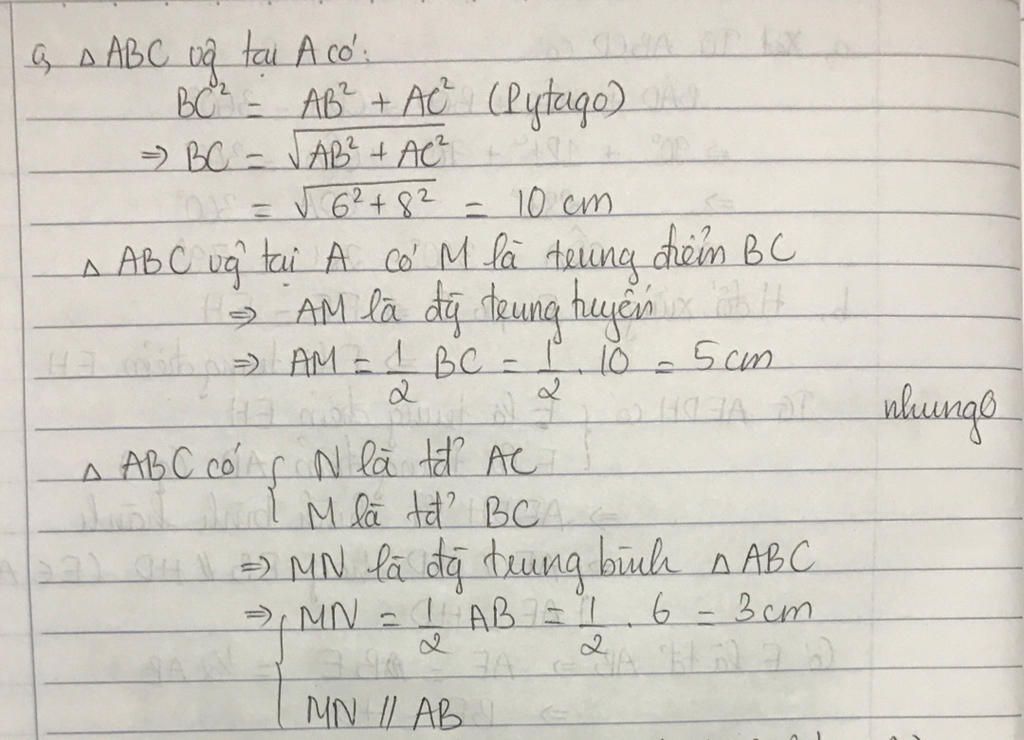 a, △ ABC vg̃ tại A có:
BC² = AB² + AC² (Pytago)
⇒ BC = √AB² + AC²
= √6² + 8² = 10 cm
△ ABC vg̃ tại A có M là trung điểm BC
⇒ AM là đg̃ trung tuyến
⇒ AM = 1/2 BC = 1/2 . 10 = 5 cm
nhungo
△ ABC có { N là tđ' AC
M là tđ' BC
⇒ MN là đg̃ trung bình △ ABC
⇒ { MN = 1/2 AB = 1/2 . 6 = 3 cm
MN // AB